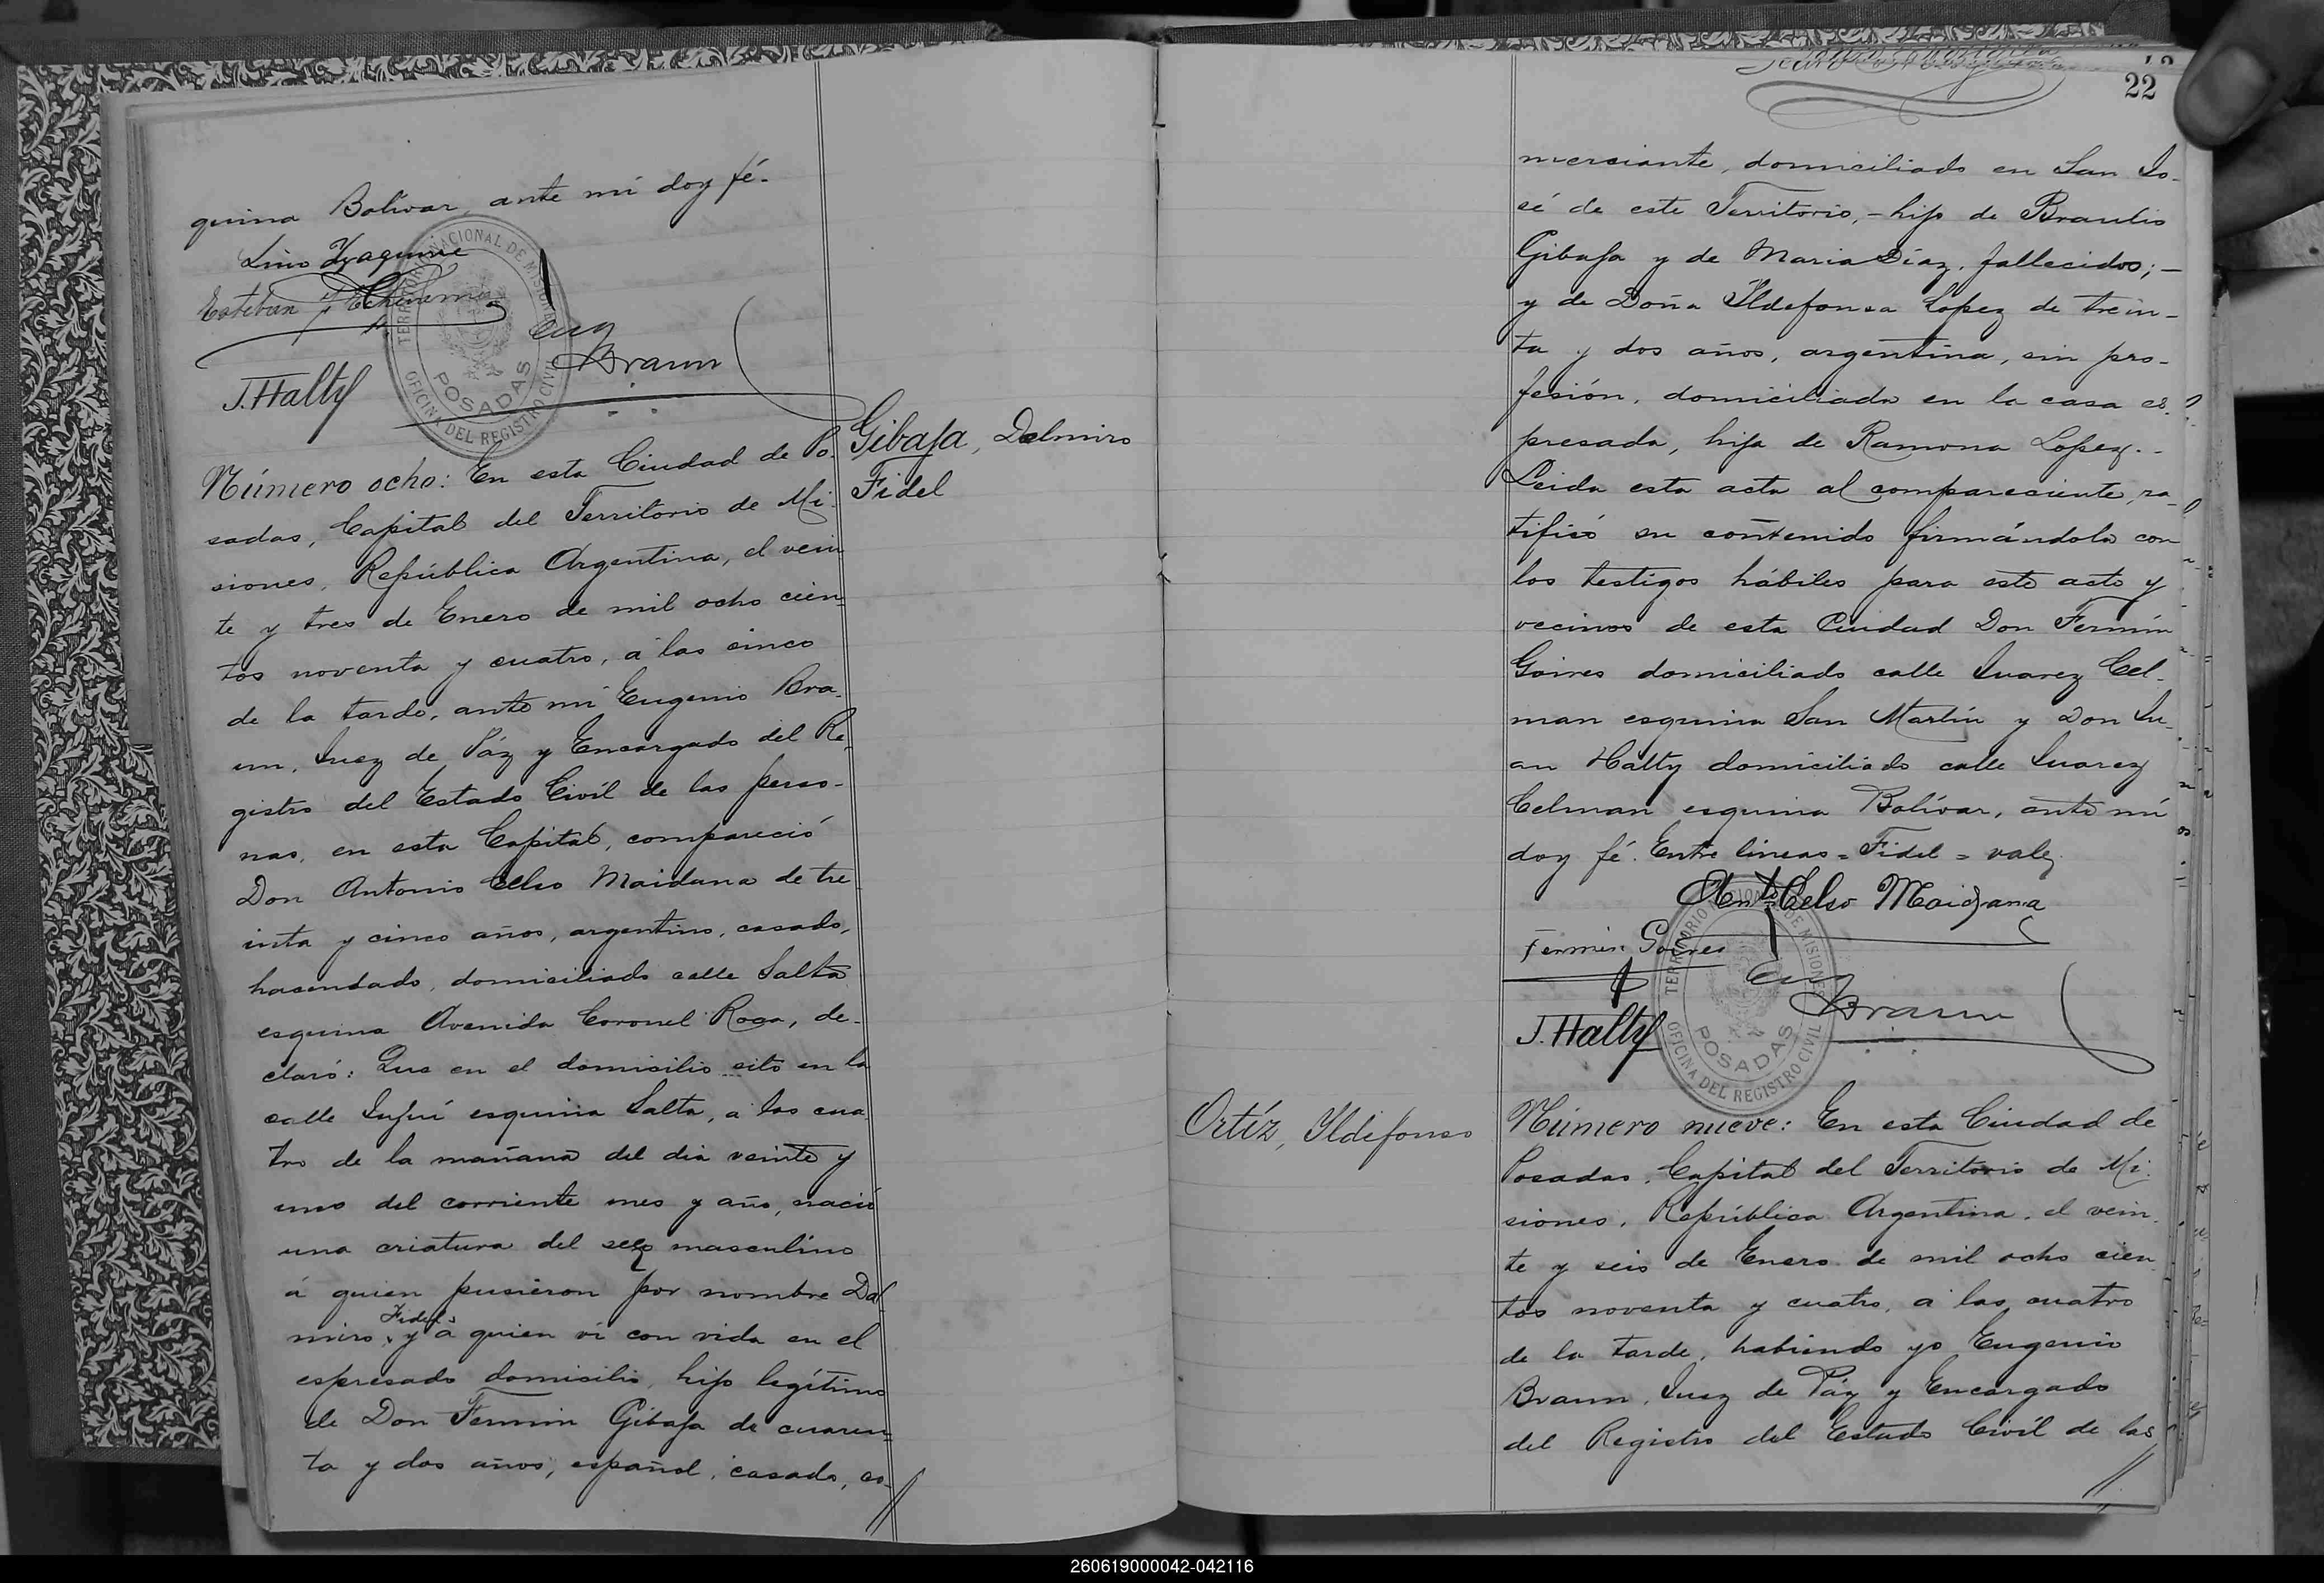 quina Bolívar, ante mi doy fé.
Lino Yzaguirre
Esteban
Eug Braun
J. Halty
TERRITORIO NACIONAL DE MISIONES
POSADAS
OFICINA DEL REGISTRO CIVIL
Gibaja, Delmiro
Fidel
Número ocho: En esta Ciudad de Po-
sadas, Capital del Territorio de Mi-
siones, República Argentina, el vein
te y tres de Enero de mil ocho cien=
tos noventa y cuatro, á las cinco
de la tarde, ante mi Eugenio Bra-
un, Juez de Páz y Encargado del Re-
gistro del Estado Civíl de las perso-
nas, en esta Capital, compareció
Don Antonio Celso Maidana de tre
inta y cinco años, argentino, casado,
hacendado, domiciliado calle Salta
esquina Avenida Coronel Roca, de-
claró: Que en el domicilio sito en la
calle Jujuí esquina Salta, á las cua
tro de la mañana del dia veinte y
uno del corriente mes y año, nació
una criatura del seco masculino
á quien pusieron por nombre Del
miro Fidel y á quien ví con vida en el
espresado domicilio, hijo legítimo
de Don Fermin Gibaja de cuaren=
ta y dos años, español, casado, co-
22
merciante, domiciliado en San Jo-
sé de este Territorio,- hijo de Braulio
Gibaja y de Maria Díaz, fallecidos;-
y de Doña Yldefonsa Lopez de trein-
ta y dos años, argentina, sin pro-
fesión, domiciliada en la casa es-
presada, hija de Ramona Lopez.-
Leida esta acta al compareciente, ra-
tificó su contenido firmándola con
los testigos hábiles para este acto y
vecinos de esta Ciudad Don Fermín
Goires domiciliado calle Juarez Cel-
man esquina San Martín y Don Ju-
an Halty domiciliado calle Juarez
Celman esquina Bolívar, ante mí
doy fé. Entre líneas = Fidel = vale
Anto Celso Maidana
Fermin Goires
Eug Braun
J. Halty
TERRITORIO NACIONAL DE MISIONES
POSADAS
OFICINA DEL REGISTRO CIVIL
Ortíz, Yldefonso
Número nueve: En esta Ciudad de
Posadas, Capital del Territorio de Mi-
siones, República Argentina, el vein-
te y seis de Enero de mil ocho cien
tos noventa y cuatro, á las cuatro
de la tarde, habiendo yo Eugenio
Braun, Juez de Páz y Encargado
del Registro del Estado Civíl de las
260619000042-042116